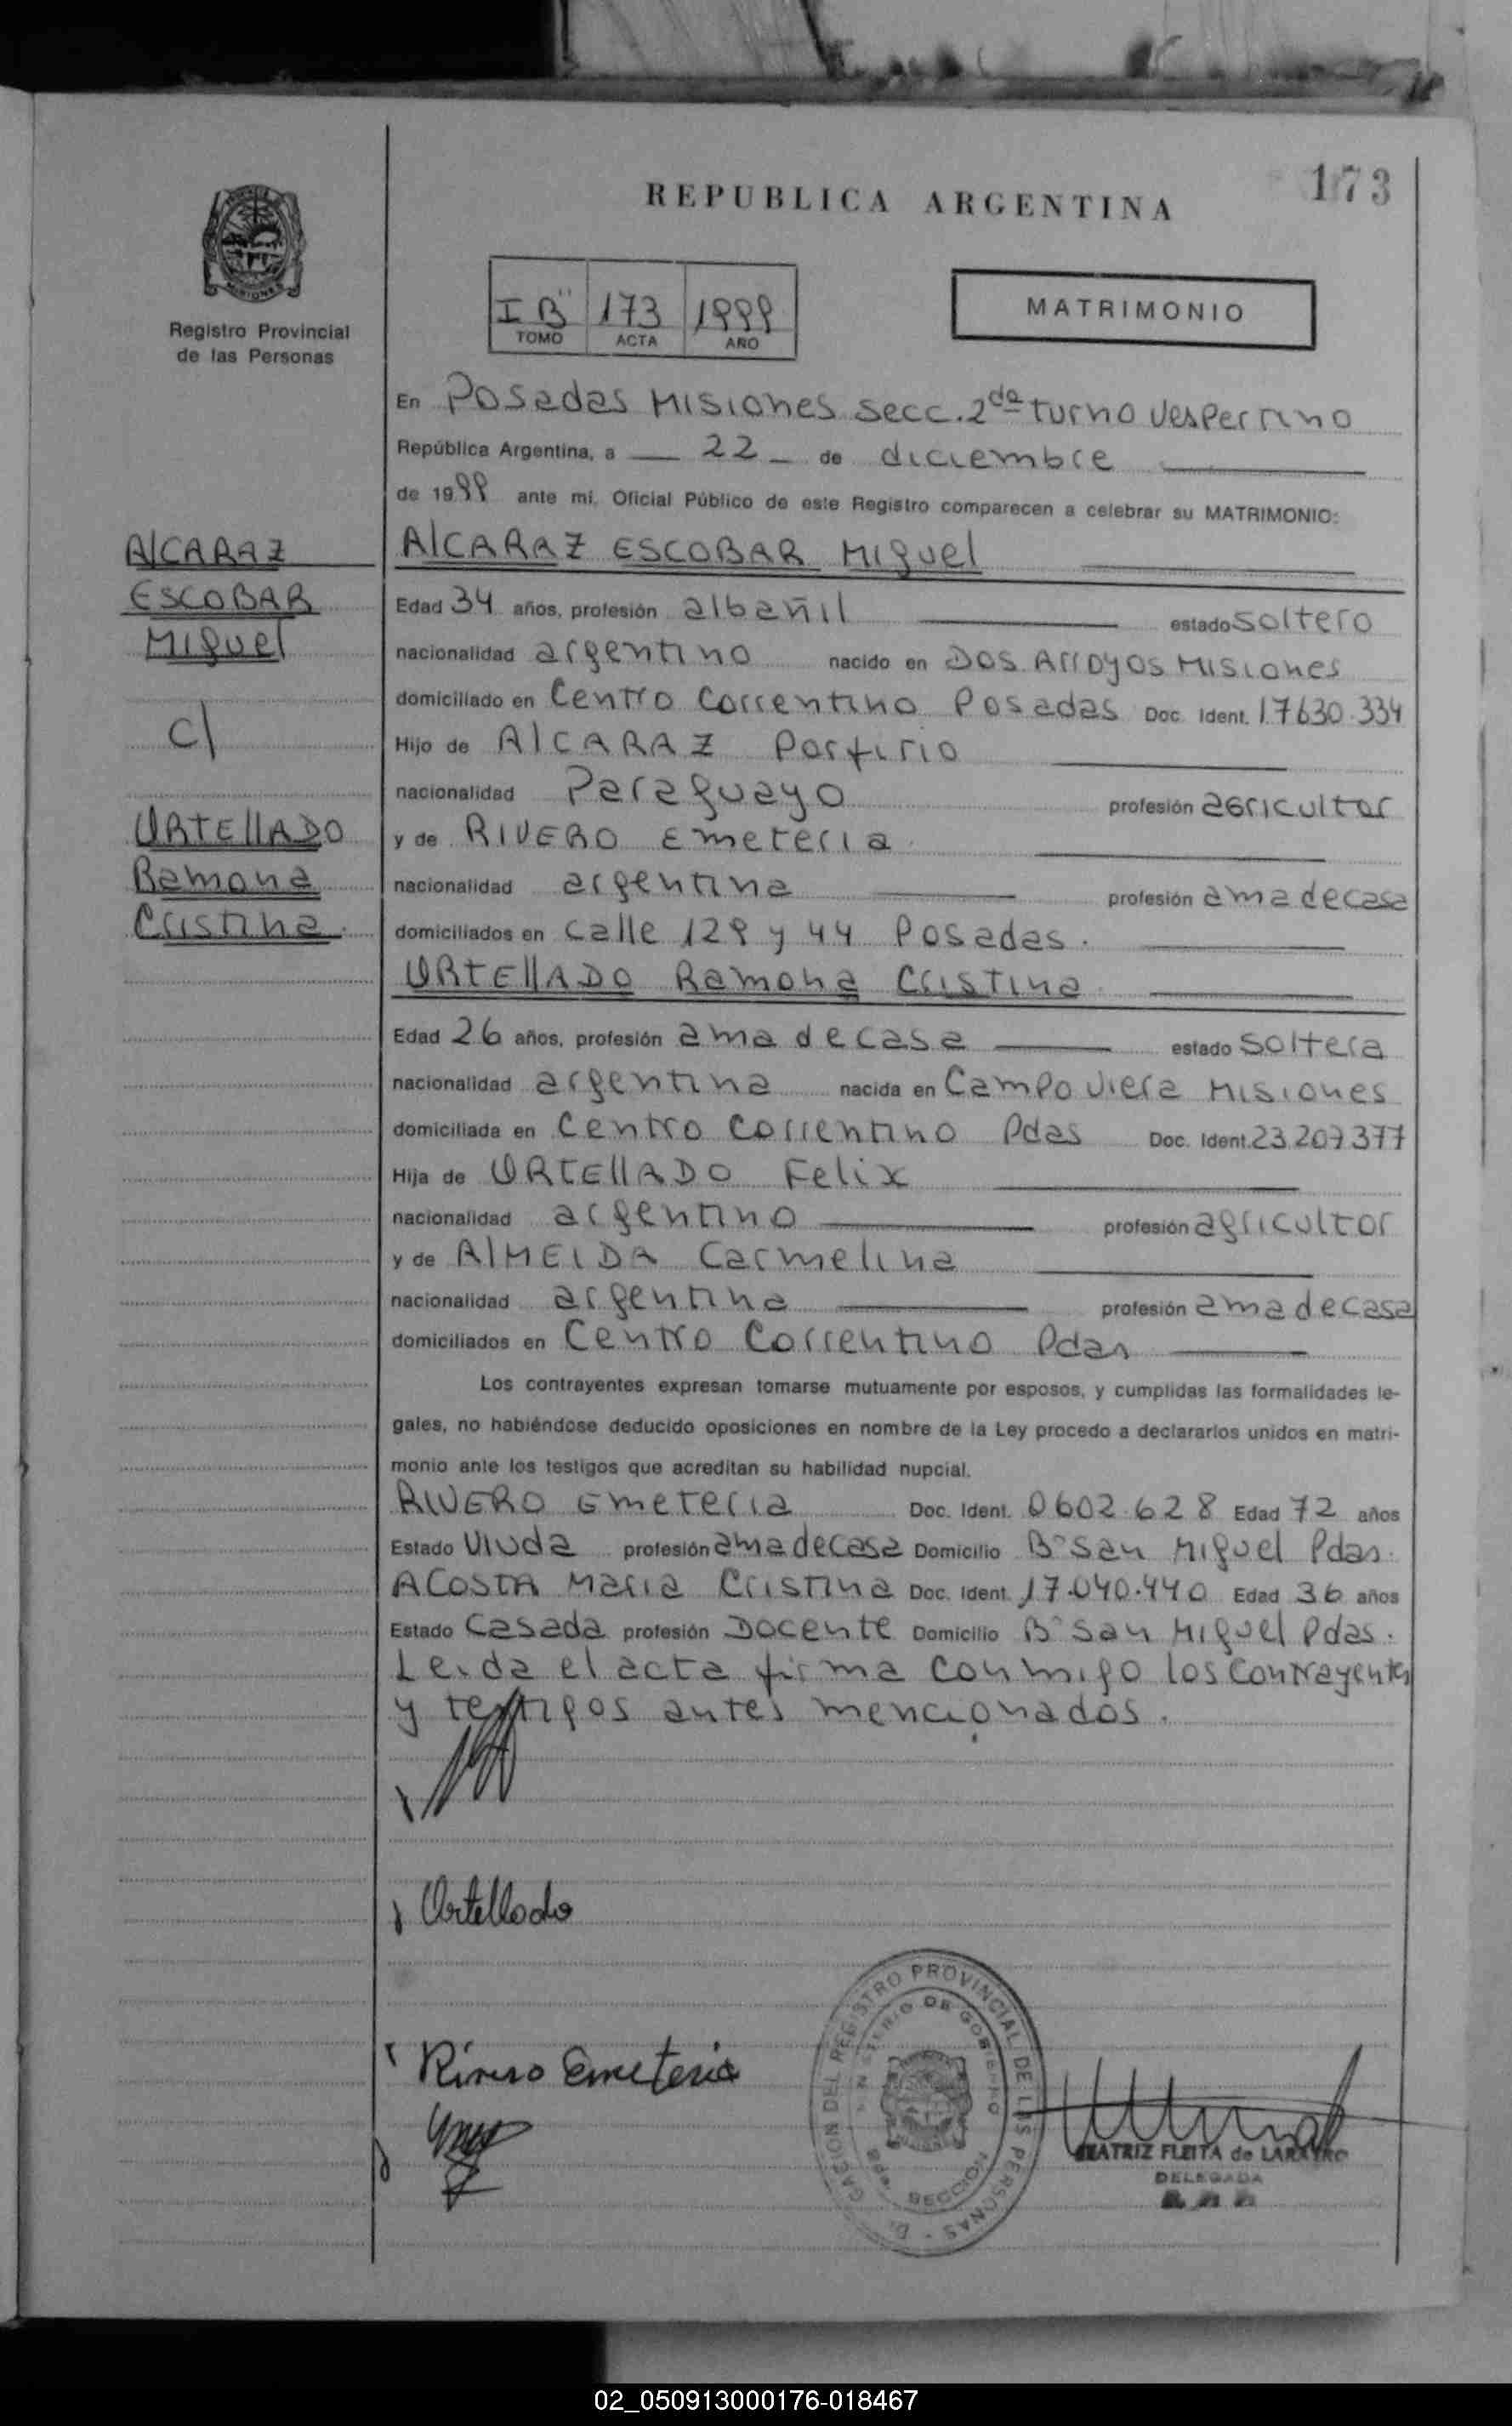 173
REPUBLICA ARGENTINA
Registro Provincial
de las Personas
I B" 173 1999
TOMO ACTA AÑO
MATRIMONIO
En Posadas Misiones secc. 2da turno vespertino
República Argentina, a 22 de diciembre
de 1999 ante mí, Oficial Público de este Registro comparecen a celebrar su MATRIMONIO:
AlCARAZ
ESCOBAR
Miguel
c/
URTEllADO
Ramona
Cristina.
AlCARAZ ESCOBAR Miguel
Edad 34 años, profesión albañil estado soltero
nacionalidad argentino nacido en Dos Arroyos Misiones
domiciliado en Centro Correntino Posadas Doc. Ident. 17630.334
Hijo de AlCARAZ Porfirio
nacionalidad Paraguayo profesión agricultor
y de RIVERO Emeteria
nacionalidad argentina profesión ama de casa
domiciliados en calle 129 y 44 Posadas.
URTEllADO Ramona Cristina
Edad 26 años, profesión ama de casa estado soltera
nacionalidad argentina nacida en Campo Viera Misiones
domiciliada en Centro Correntino Pdas Doc. Ident. 23.207.377
Hija de URTEllADO Felix
nacionalidad argentino profesión agricultor
y de AlMEIDA Carmelina
nacionalidad argentina profesión ama de casa
domiciliados en Centro Correntino Pdas
Los contrayentes expresan tomarse mutuamente por esposos, y cumplidas las formalidades le-
gales, no habiéndose deducido oposiciones en nombre de la Ley procedo a declararlos unidos en matri-
monio ante los testigos que acreditan su habilidad nupcial.
RIVERO Emeteria Doc. Ident. 0602.628 Edad 72 años
Estado Viuda profesión ama de casa Domicilio B° San Miguel Pdas.
ACOSTA Maria Cristina Doc. Ident. 17.040.440 Edad 36 años
Estado Casada profesión Docente Domicilio B° San Miguel Pdas.
Leida el acta firma conmigo los contrayentes
y testigos antes mencionados.
Urtellado
Rivero Emeteria
REGISTRO PROVINCIAL DE LAS PERSONAS
MINISTERIO DE GOBIERNO
SECCION
BEATRIZ FLEITA de
DELEGADA
02_050913000176-018467